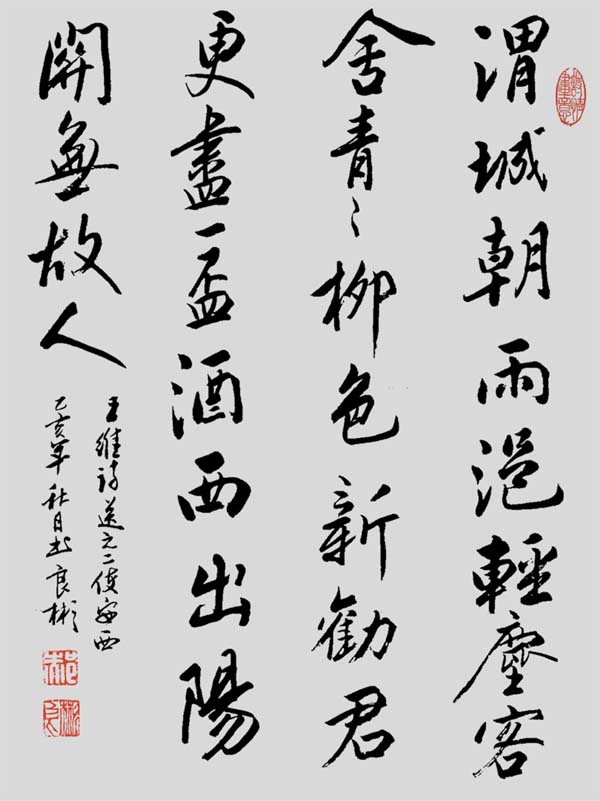 渭城朝雨浥輕塵客
舍青〻柳色新勸君
更盡一盃酒西出陽
關無故人
王維詩送元二使安西
乙亥年秋月於良彬